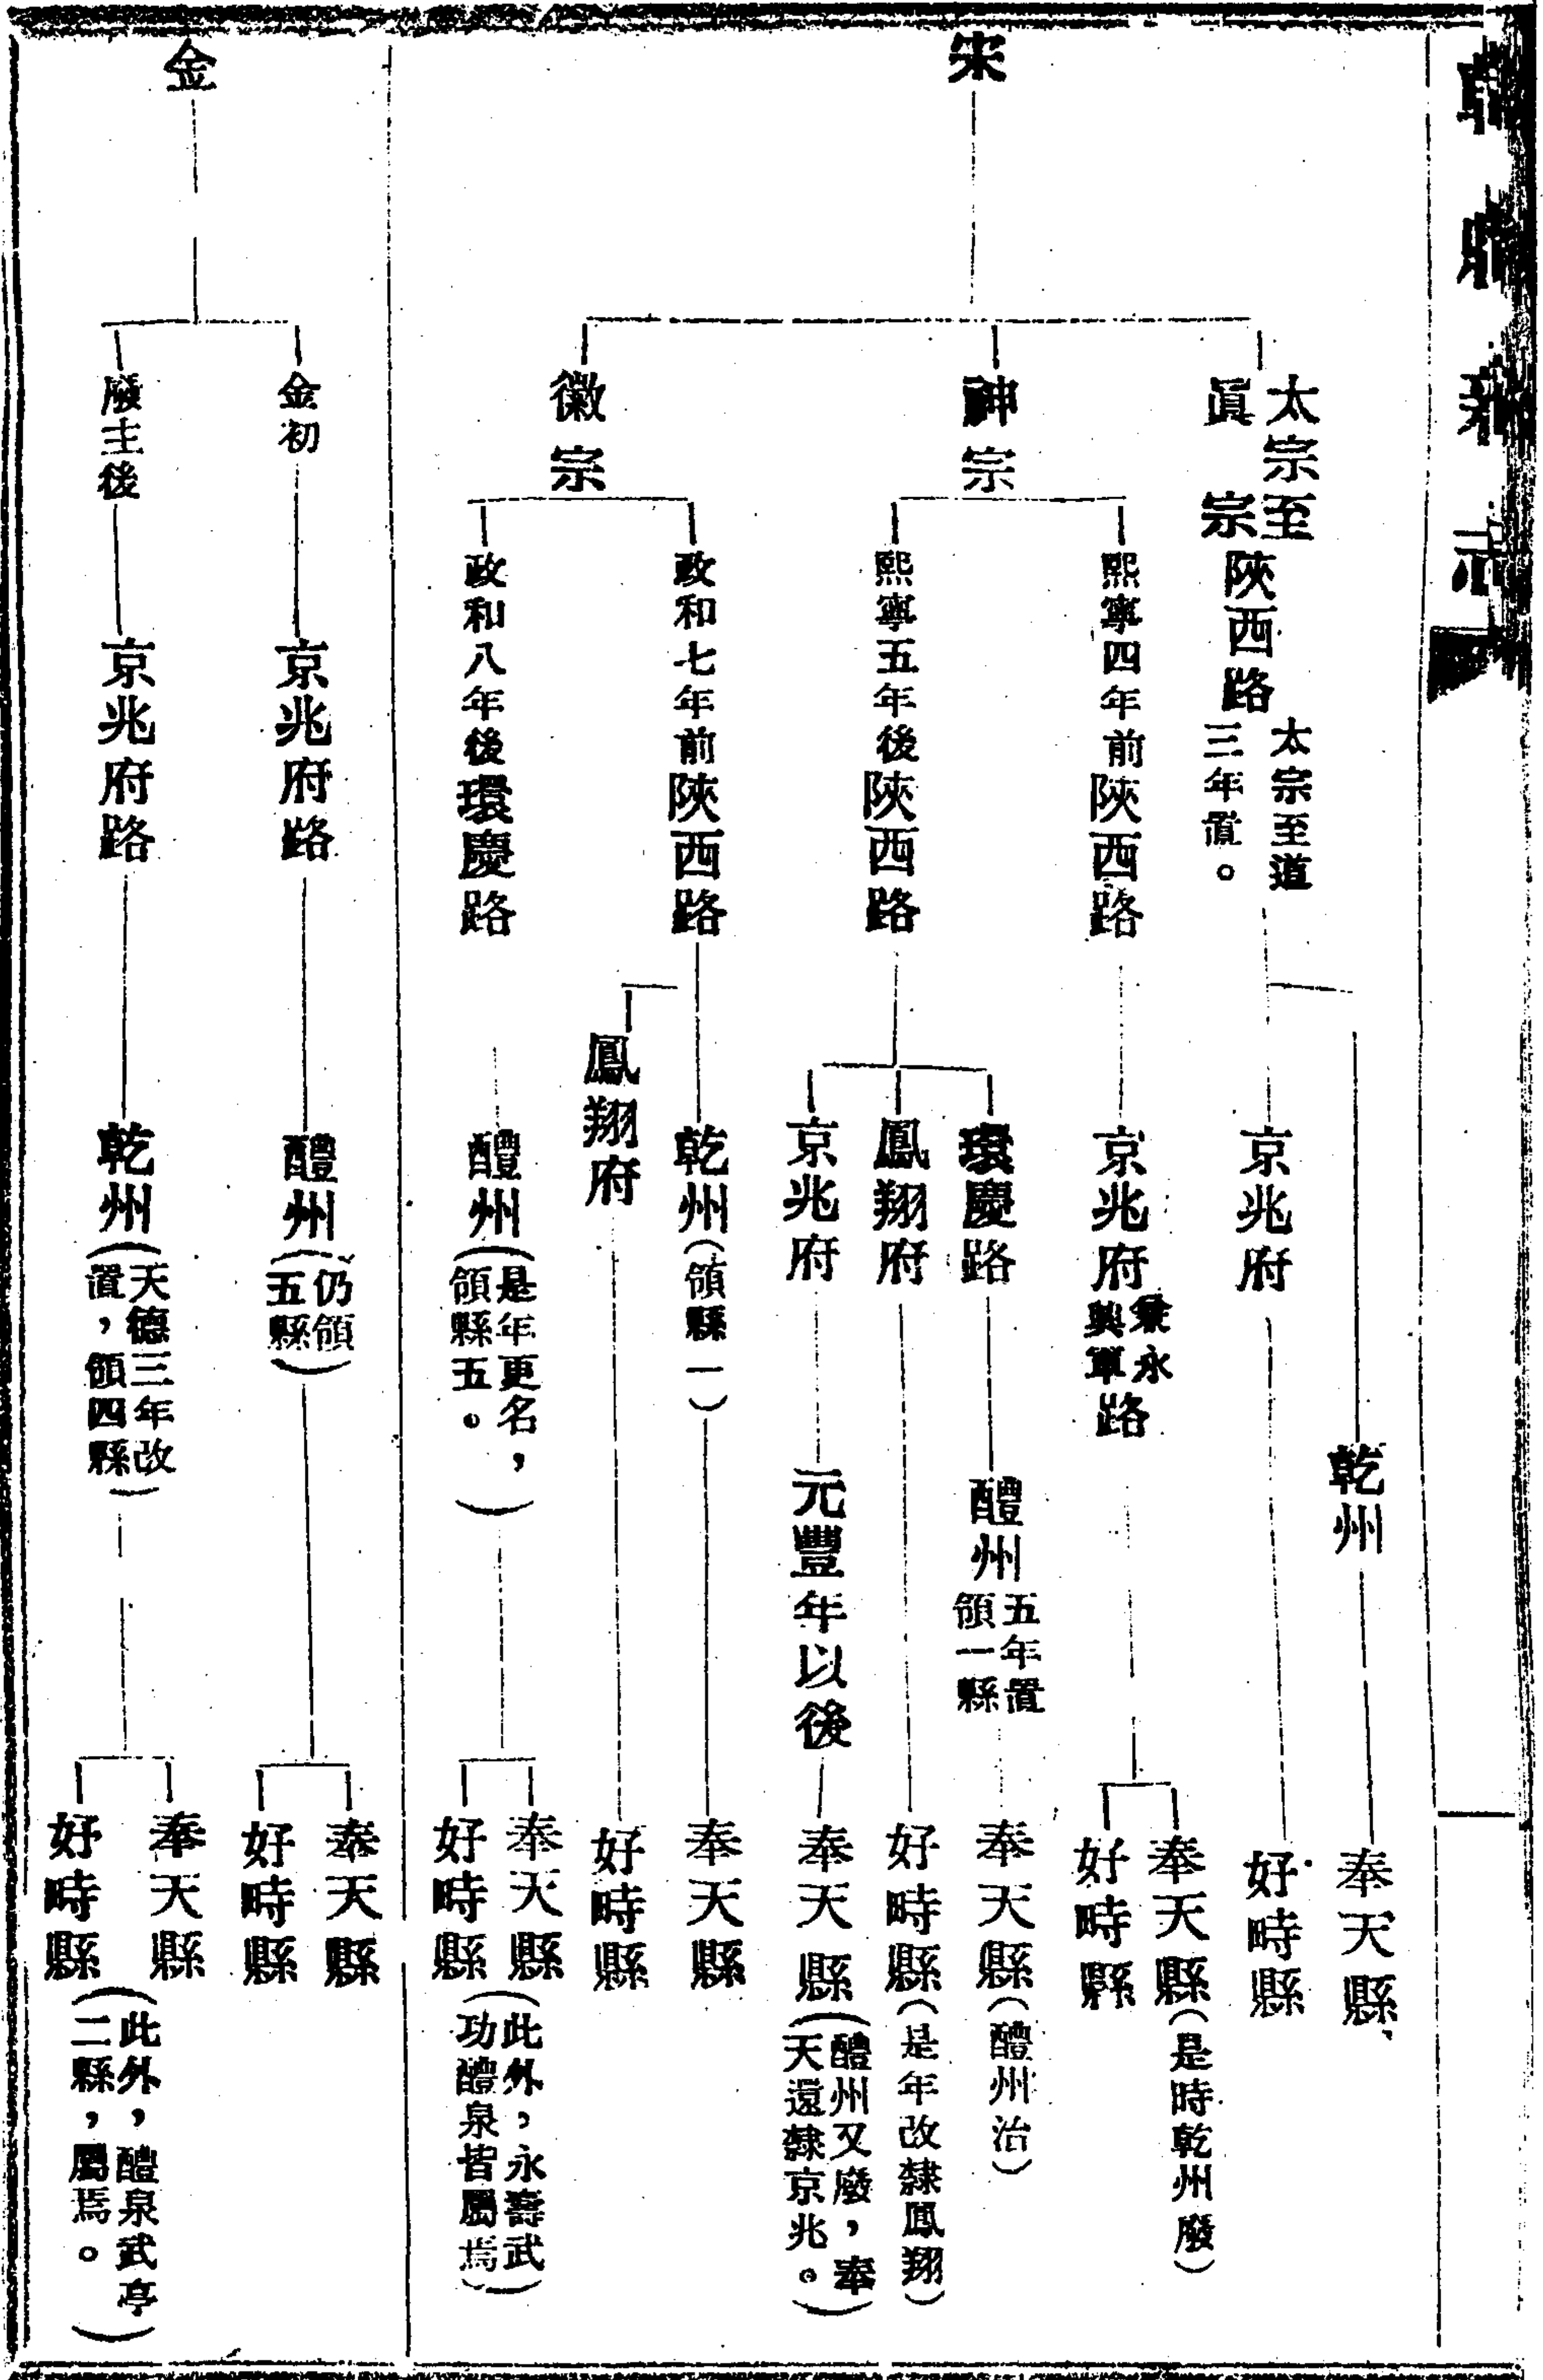 宋
太宗至
眞宗
陝西路
太宗至道
三年置。
乾州
奉天縣
京兆府
好畤縣
神宗
熙寧四年前陝西路
京兆府
兼永
興軍
路
奉天縣(是時乾州廢)
好畤縣
熙寧五年後陝西路
環慶路
醴州
五年置
領一縣
奉天縣(醴州治)
鳳翔府
好畤縣(是年改隸鳳翔)
京兆府
元豐年以後
奉天縣
(醴州又廢,奉
天還隸京兆。)
徽宗
政和七年前陝西路
乾州(領縣一)
奉天縣
鳳翔府
好畤縣
政和八年後環慶路
醴州
(是年更名,
領縣五。)
奉天縣
好畤縣
(此外,永壽武
功醴泉皆屬焉)
金
金初
京兆府路
醴州
(仍領
五縣)
奉天縣
好畤縣
廢主後
京兆府路
乾州
(天德三年改
置,領四縣)
奉天縣
好畤縣
(此外,醴泉武亭
二縣,屬焉。)